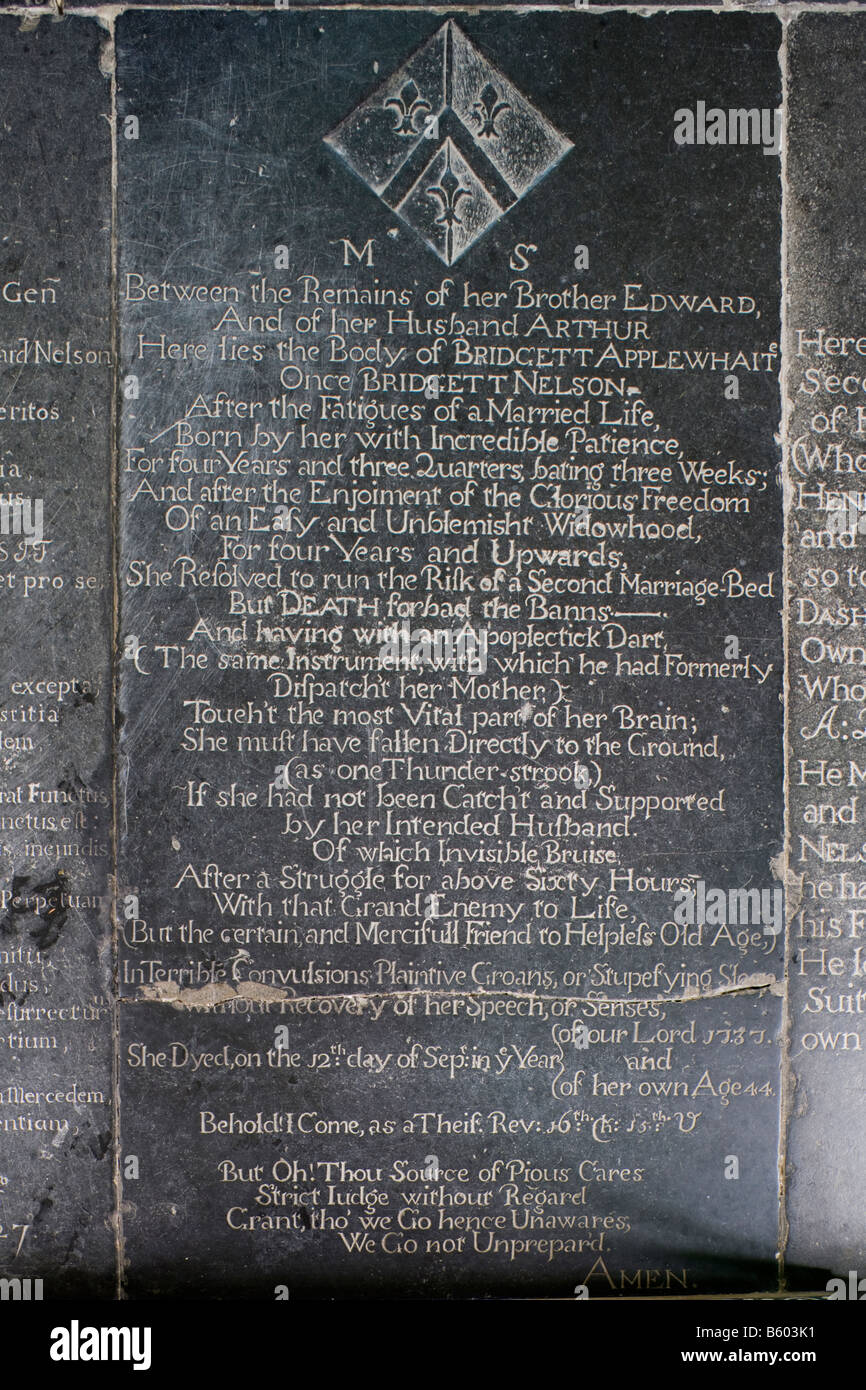 M S
Between the Remains of her Brother EDWARD,
And of her Husband ARTHUR
Here lies the Body of BRIDGETT APPLEWHAITE
Once BRIDGETT NELSON.
After the Fatigues of a Married Life,
Born by her with Incredible Patience,
For four Years and three Quarters, bating three Weeks;
And after the Enjoiment of the Glorious Freedom
Of an Easy and Unblemisht Widowhood,
For four Years and Upwards,
She Resolved to run the Risk of a Second Marriage-Bed
But DEATH forbad the Banns —.
And having with an Apoplectick Dart,
(The same Instrument, with which he had Formerly
Dispatch't her Mother,)
Touch't the most Vital part of her Brain;
She must have fallen Directly to the Ground,
(as one Thunder-strook,)
If she had not been Catch't and Supported
by her Intended Husband.
Of which Invisible Bruise,
After a Struggle for above Sixty Hours,
With that Grand Enemy to Life,
(But the certain and Mercifull Friend to Helpless Old Age,)
In Terrible Convulsions Plaintive Groans, or Stupefying Sleep
without Recovery of her Speech, or Senses,
She Dyed, on the 12th day of Sept: in ye Year
(of our Lord 1737.
and
(of her own Age 44.
Behold! I Come, as a Theif. Rev: 16th Ch: 15th V
But Oh! Thou Source of Pious Cares
Strict Iudge without Regard
Grant, tho' we Go hence Unawares,
We Go not Unprepar'd.
AMEN.
Gen̄
Nelson
eritos,
ia,
us
et pro se,
excepta,
stitia
lem
rat Functus
nctus est
Perpetuam
dus;
esurrectur
rtium,
Mercedem,
entiam,
27
Here
Seco
of E
(Who
HEN
and
so to
DASH
Own
Who
He M
and
NELS
he ha
his F
He l
Suit
own
alamy
Image ID: B603K1
www.alamy.com